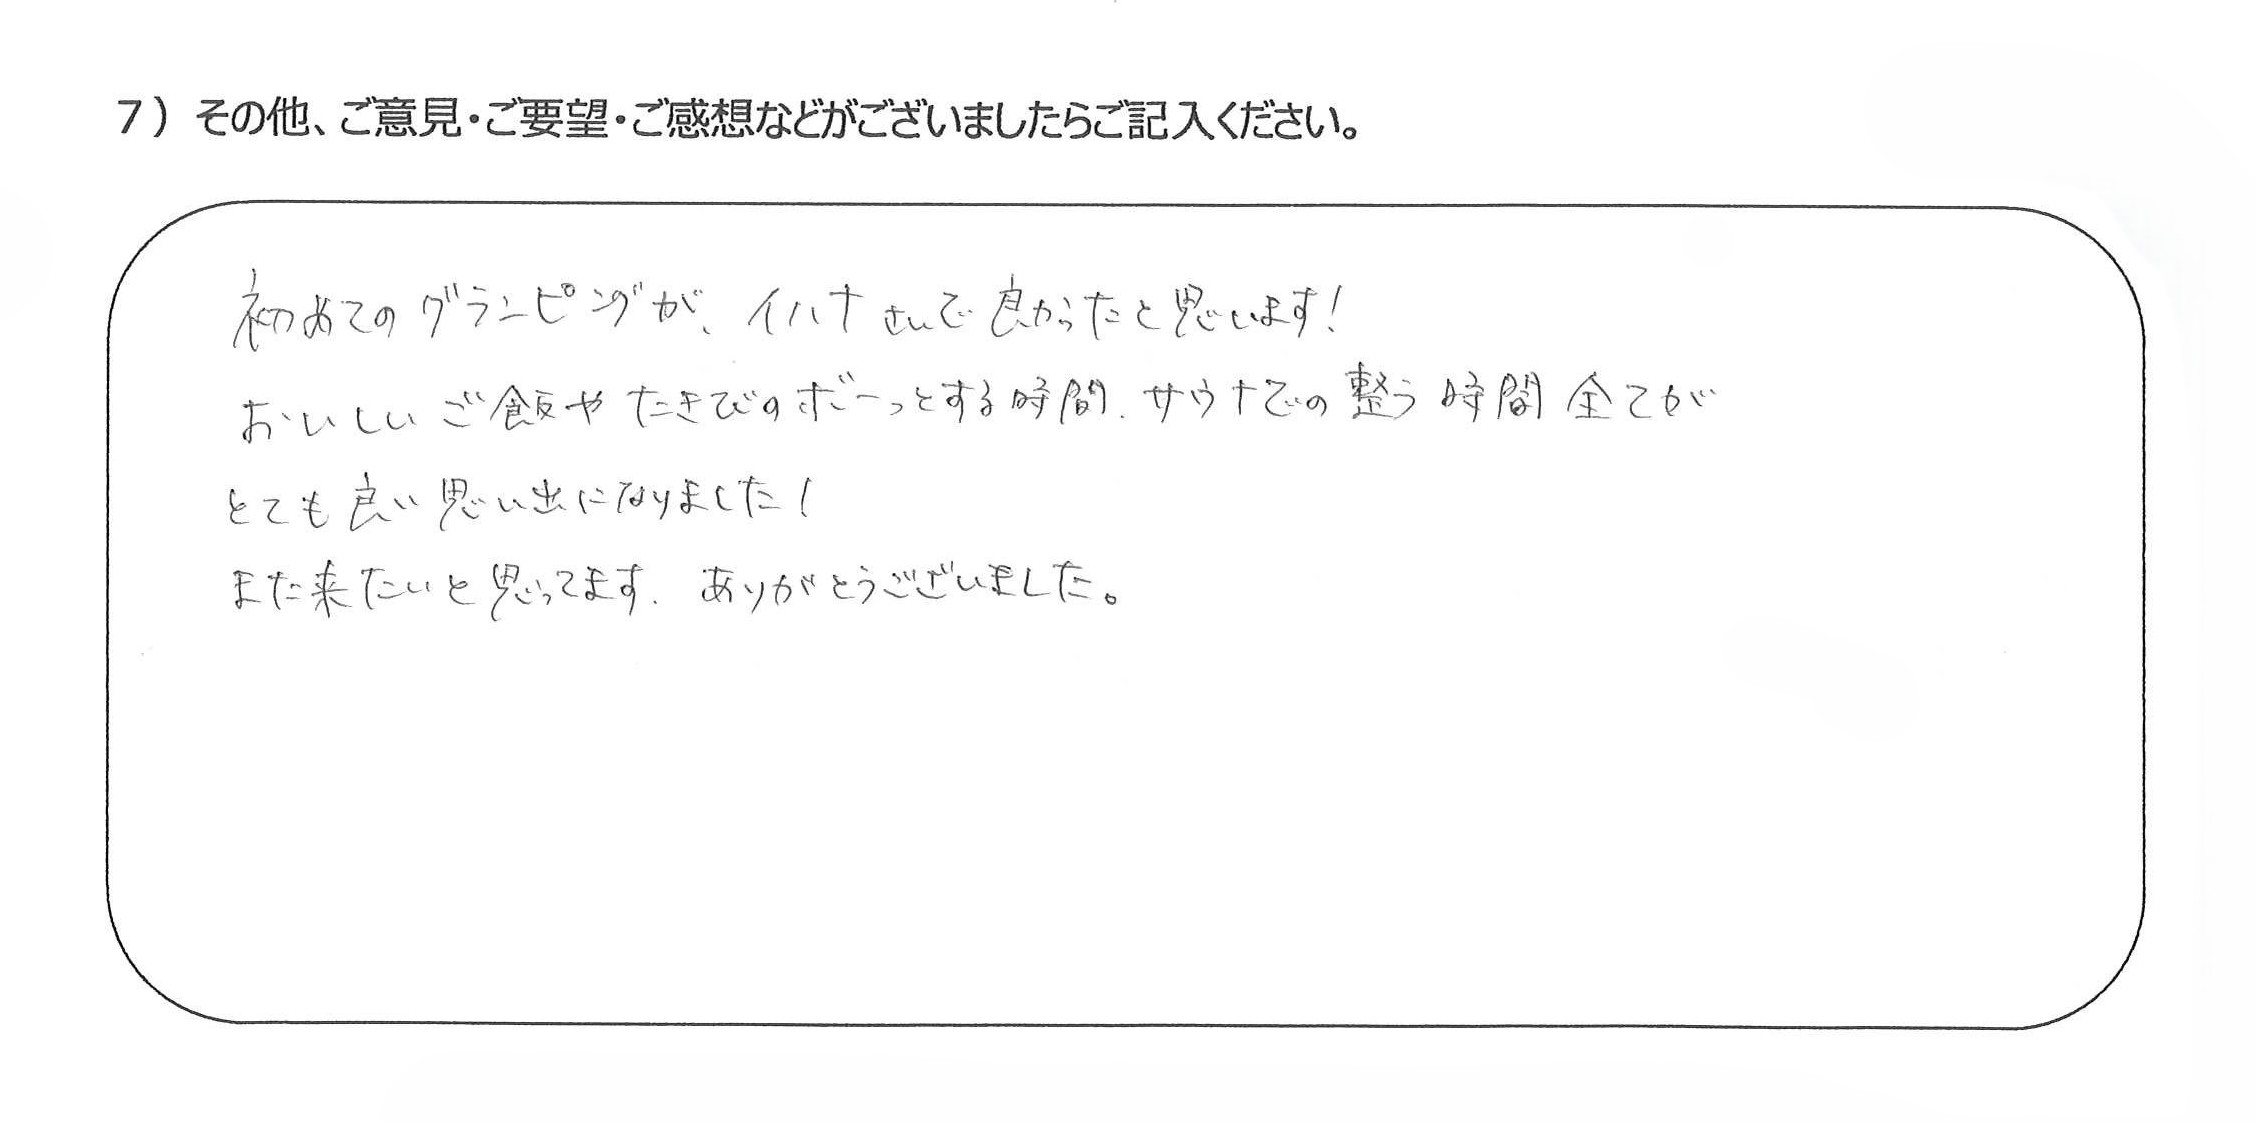 7）その他、ご意見・ご要望・ご感想などがございましたらご記入ください。
初めてのグランピングが、イハナさんで良かったと思います！
おいしいご飯やたきびのボーっとする時間、サウナでの整う時間全てが
とても良い思い出になりました！
また来たいと思ってます、ありがとうございました。